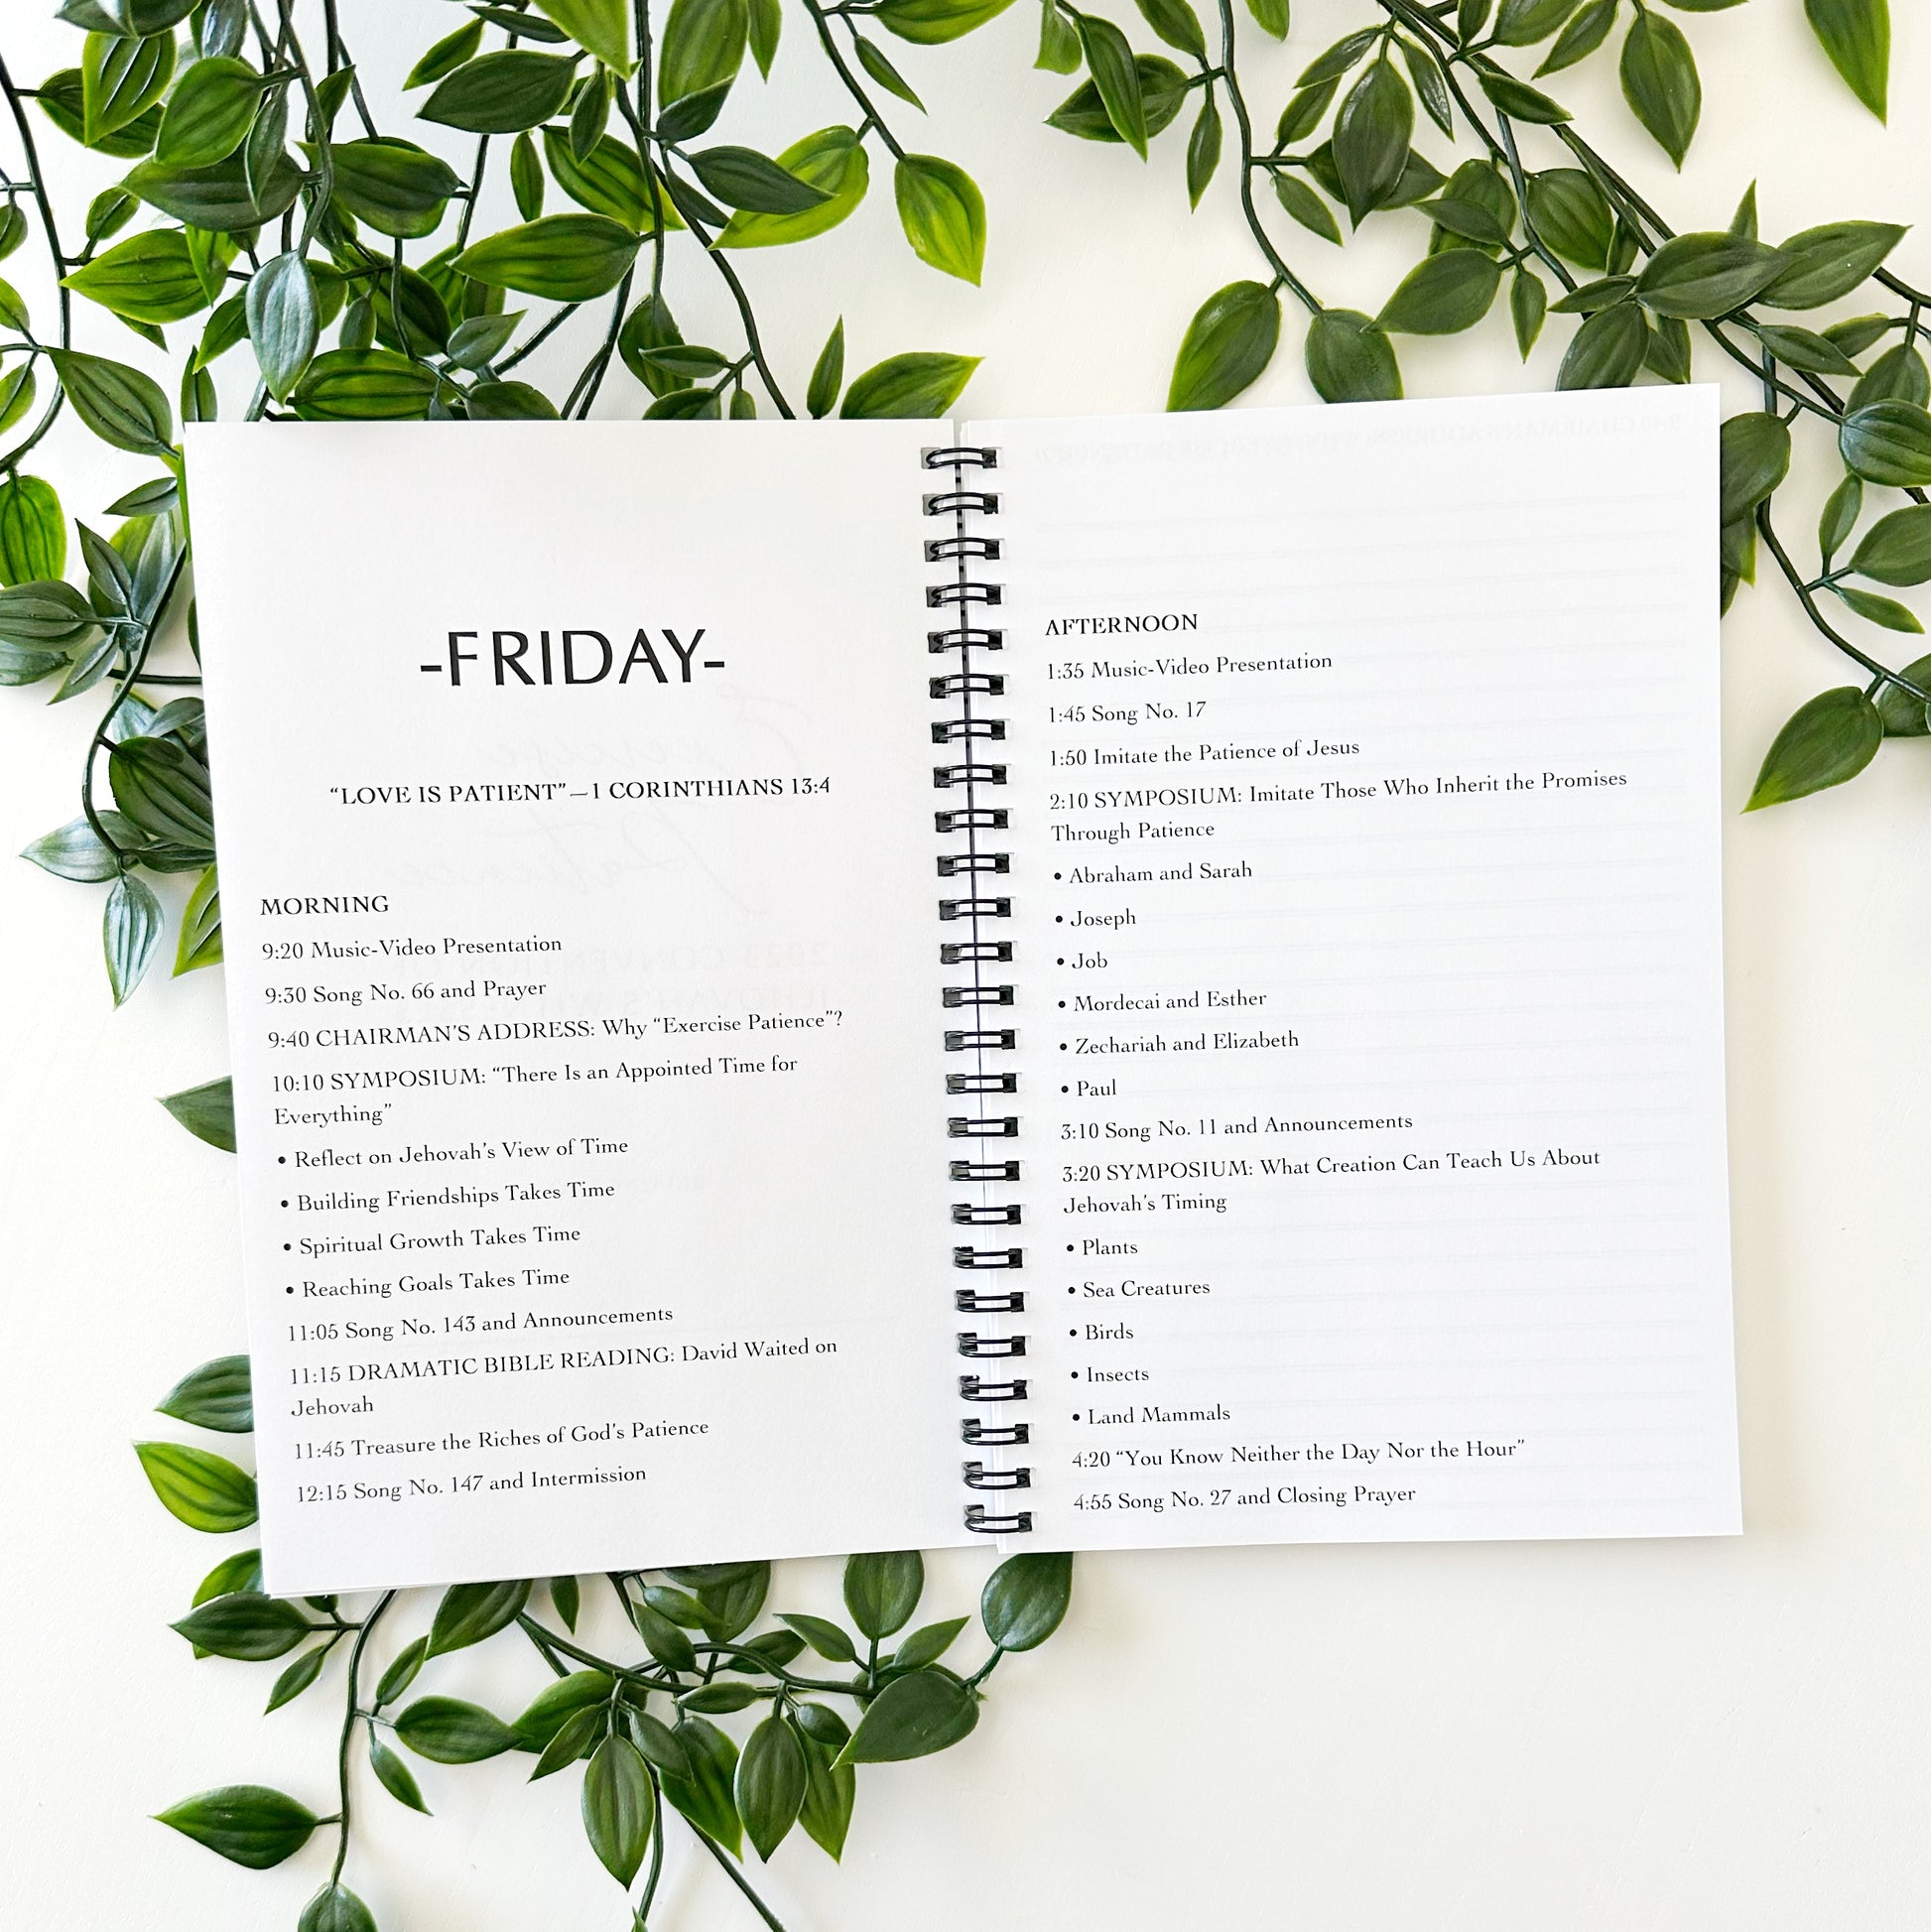 -FRIDAY-
“LOVE IS PATIENT”—1 CORINTHIANS 13:4
MORNING
9:20 Music-Video Presentation
9:30 Song No. 66 and Prayer
9:40 CHAIRMAN’S ADDRESS: Why “Exercise Patience”?
10:10 SYMPOSIUM: “There Is an Appointed Time for
Everything”
• Reflect on Jehovah’s View of Time
• Building Friendships Takes Time
• Spiritual Growth Takes Time
• Reaching Goals Takes Time
11:05 Song No. 143 and Announcements
11:15 DRAMATIC BIBLE READING: David Waited on
Jehovah
11:45 Treasure the Riches of God’s Patience
12:15 Song No. 147 and Intermission
AFTERNOON
1:35 Music-Video Presentation
1:45 Song No. 17
1:50 Imitate the Patience of Jesus
2:10 SYMPOSIUM: Imitate Those Who Inherit the Promises
Through Patience
• Abraham and Sarah
• Joseph
• Job
• Mordecai and Esther
• Zechariah and Elizabeth
• Paul
3:10 Song No. 11 and Announcements
3:20 SYMPOSIUM: What Creation Can Teach Us About
Jehovah’s Timing
• Plants
• Sea Creatures
• Birds
• Insects
• Land Mammals
4:20 “You Know Neither the Day Nor the Hour”
4:55 Song No. 27 and Closing Prayer